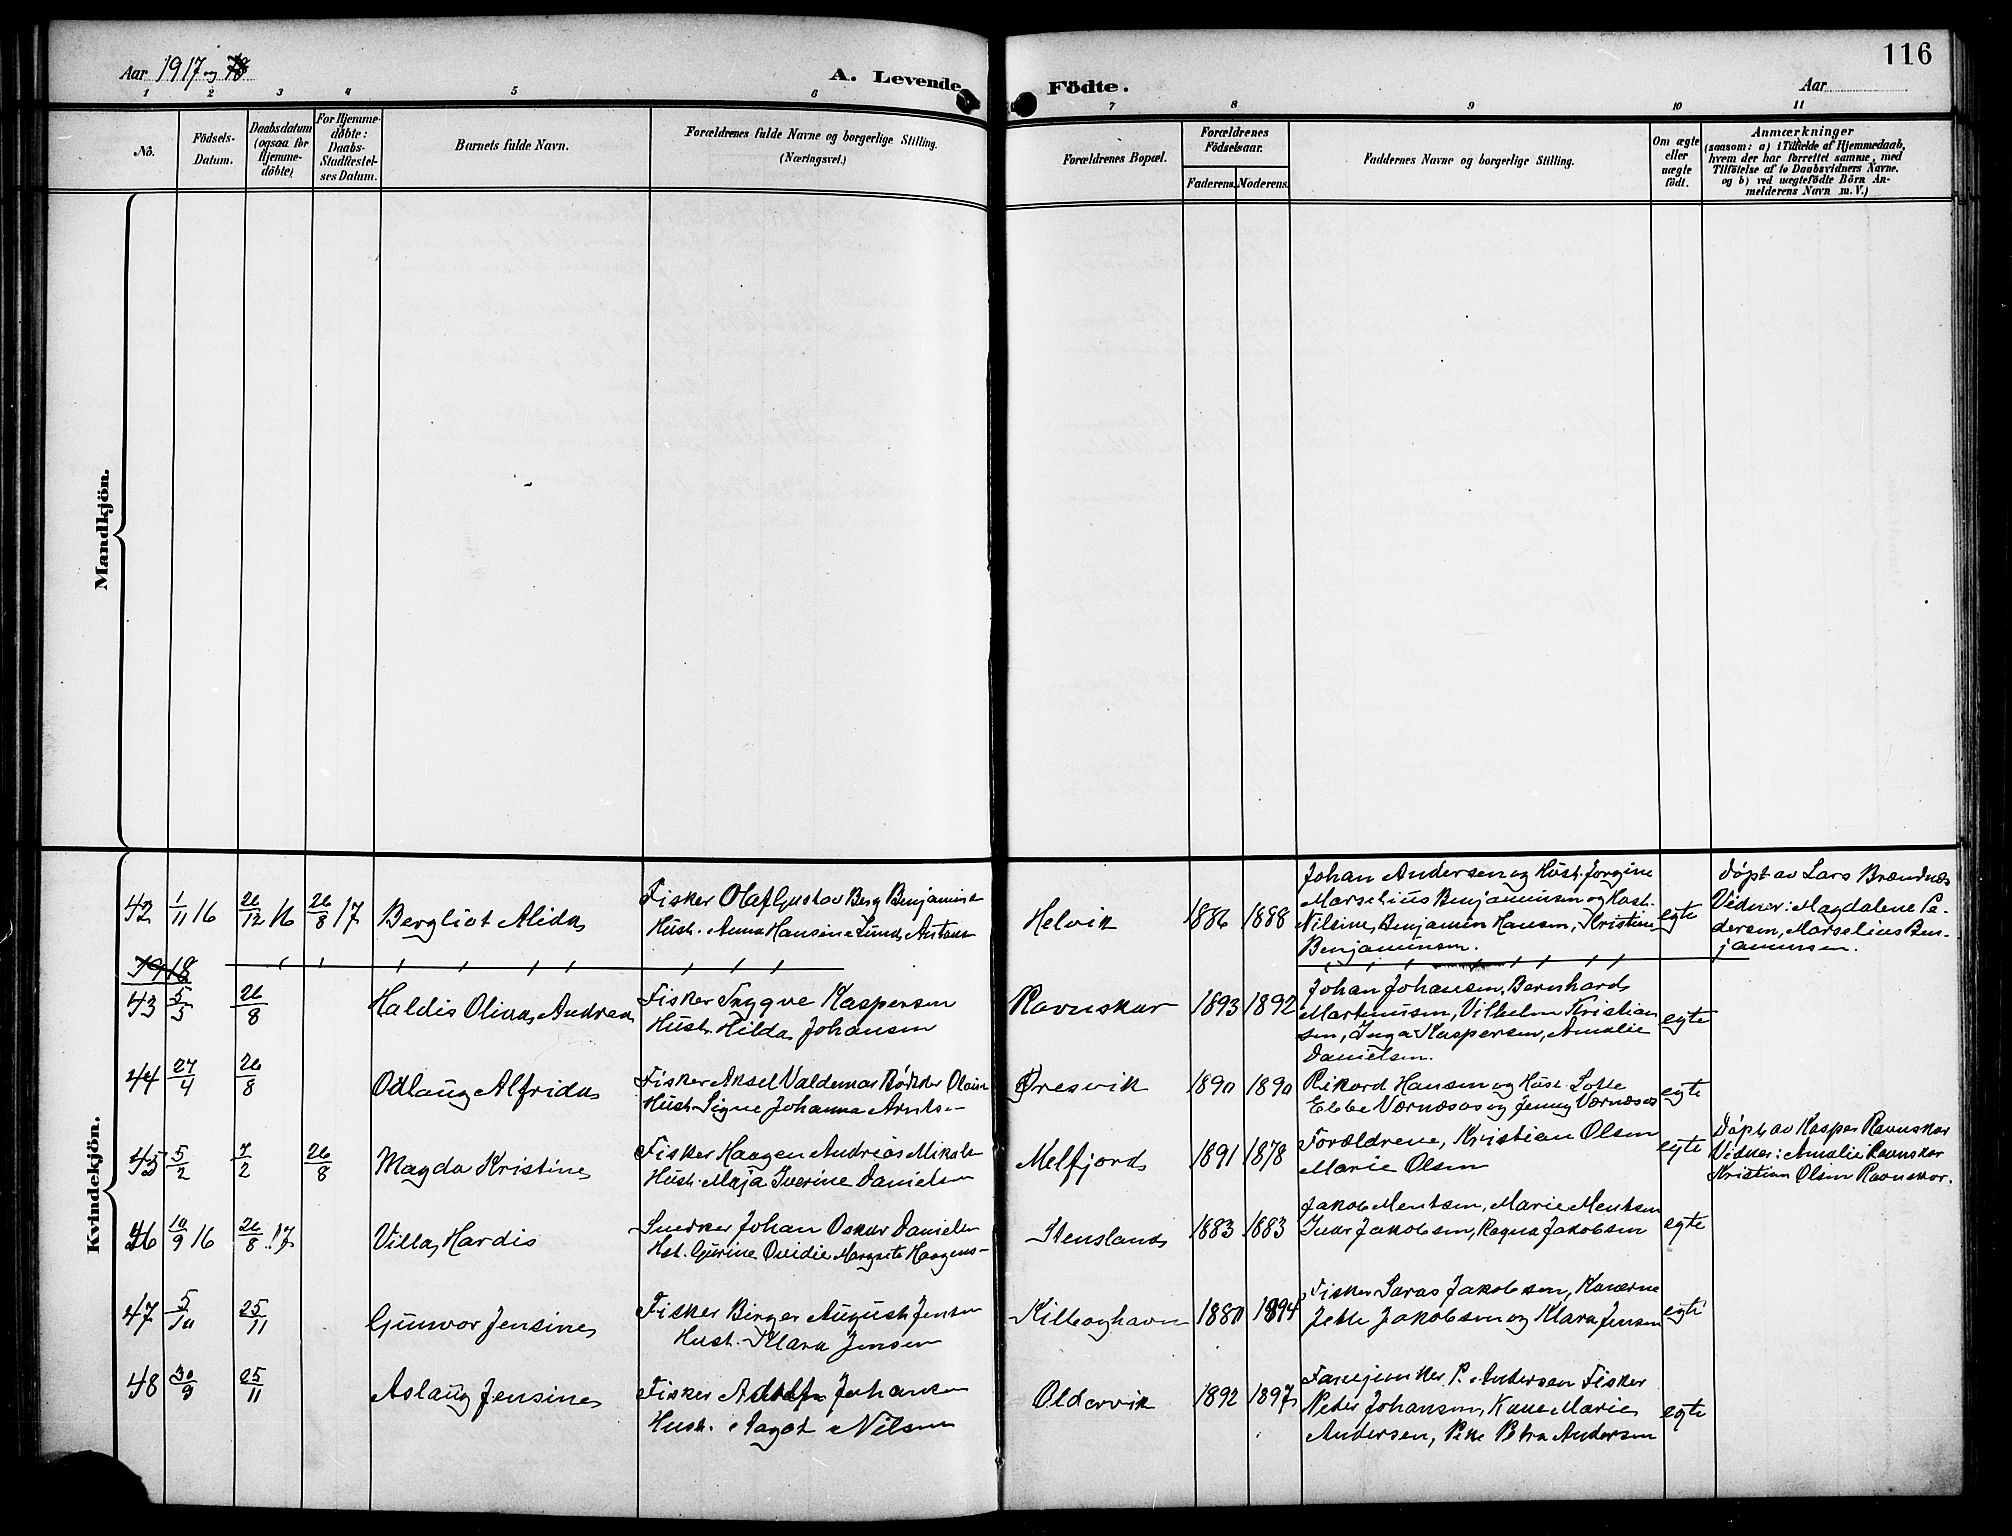 116
Aar 1917 og 18
A. Levende Födte.
Aar
1 2 3 4 5 6 7 8 9 10 11
No.
Födsels-
Datum.
Daabsdatum
(ogsaa for
Hjemme-
döbte)
For Hjemme-
döbte:
Daabs-
Stadfæstel-
ses Datum.
Barnets fulde Navn.
Forældrenes fulde Navne og borgerlige Stilling.
(Næringsvei.)
Forældrenes Bopæl.
Forældrenes
Födselsaar.
Faderens. Moderens.
Faddernes Navne og borgerlige Stilling.
Om ægte
eller
uægte
födt.
Anmærkninger
(saasom: a) i Tilfælde af Hjemmedaab,
hvem der har forrettet samme, med
Tilföielse af to Daabsvidners Navne,
og b) ved uægtefödte Börn An-
melderens Navn m. V.)
Mandkjön.
Kvindekjön.
42 1/11 16 26/12 16 26/8 17 Bergliot Alida
Fisker Olaf Gustav Berg Benjamins
Hust. Anna Hansine Lund
Helvik 1886 1888
Johan Andersen og Hust. Jorgine
Marselius Benjaminsen og Hust.
Nilsine, Benjamin Hansen, Kristine
Benjaminsen.
egte
Døpt av Lars Brændnes
Vidner: Magdalene Pe-
dersen, Marselius Ben-
jaminsen.
1918
43 5/5 26/8 Haldis Olina Andrea
Fisker Trygve Kaspersen
Hust. Hilda Johansen
Ravnskar 1893 1892
Johan Johansen, Bernhard
Martinusen, Vilhelm Kristian
sen, Inga Kaspersen, Amalie
Danielsen.
egte
44 27/4 26/8 Odlaug Alfrida
Fisker Aksel Valdemar Olsen
Hust. Signe Johanna Arnts-
Øresvik 1890 1890
Rikard Hansen og Hust. Lotte
Ebbe Værnæsos og Jenny Værnæsos
egte
45 5/2 7/2 26/8 Magda Kristine
Fisker Haagen Andreas Mikals
Hust. Maja Iverine Danielsen
Melfjord 1891 1878
Forældrene, Kristian Olsen
Marie Olsen
egte
Døpt av Kasper Ravnskar
Vidner: Amalie Ravnskar
Kristian Olsen Ravnskar.
46 10/9 16 26/8 17 Villa Hardis
Snedker Johan Oskar Daniels
Hst. Gurine Ovidie Margrete Haagens-
Stensland 1883 1883
Jakob Mentsen, Marie Mentsen
Ivar Jakobsen, Ragna Jakobsen
egte
47 5/10 25/11 Gunvor Jensine
Fisker Birger August Jensen
Hust. Klara Jensen
Kilboghavn 1880 1894
Fisker Saras Jakobsen, Konerne
Jette Jakobsen og Klara Jensen
egte
48 30/9 25/11 Aslaug Jensine
Fisker Adolf Johansen
Hust. Aagot Nilsen
Oldervik 1892 1897
Fanejunker P. Andersen Fisker
Peder Johansen, Kone Marie
Andersen, Pike Petra Andersen
egte